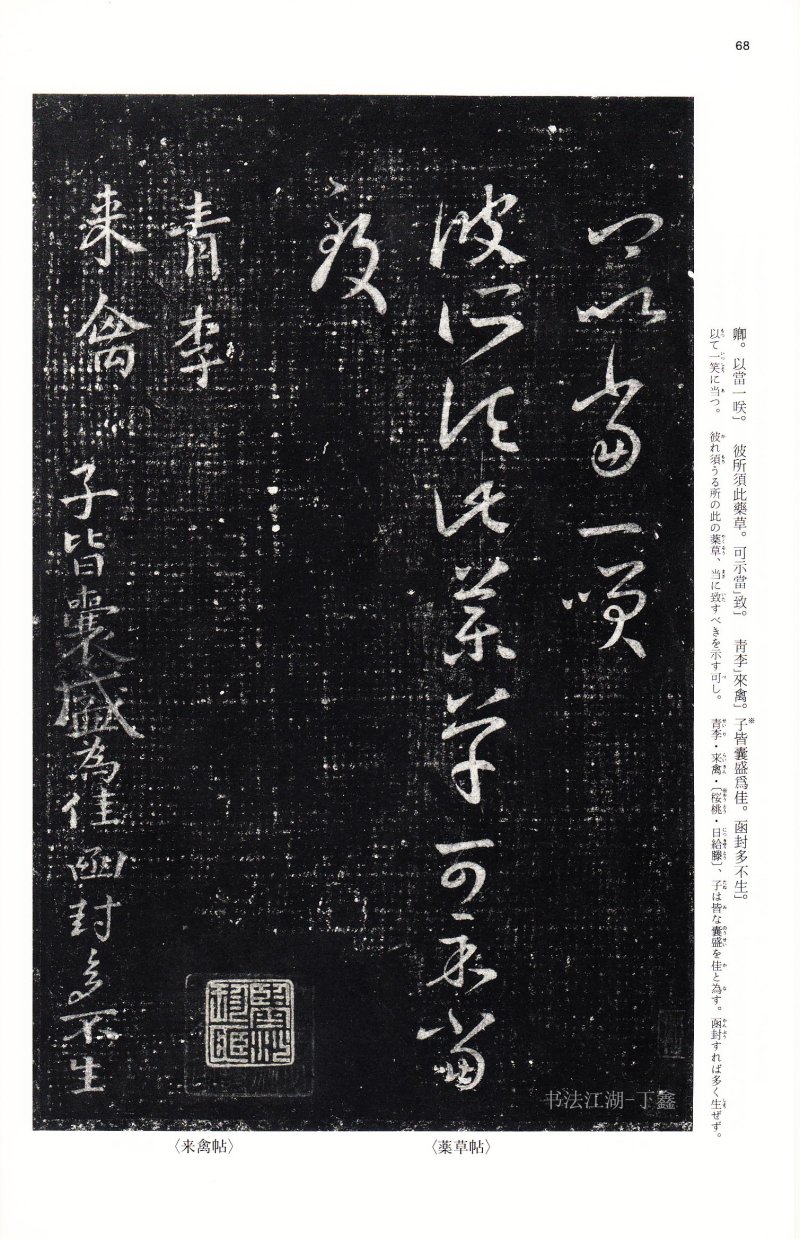 68
卿。以當一咲」。 彼所須此藥草。可示當」致。 青李」來禽」。子※皆囊盛爲佳。函封多不生」。
以て一笑に当つ。 彼れ須うる所の此の薬草、当に致すべきを示す可し。 青李・来禽・〔桜桃・日給滕〕、子は皆な囊盛を佳と為す。函封すれば多く生ぜず。
以當一咲
彼所須此藥草可示當
致
青李
来禽
子皆囊盛為佳函封多不生
书法江湖-丁鑫
〈薬草帖〉
〈来禽帖〉